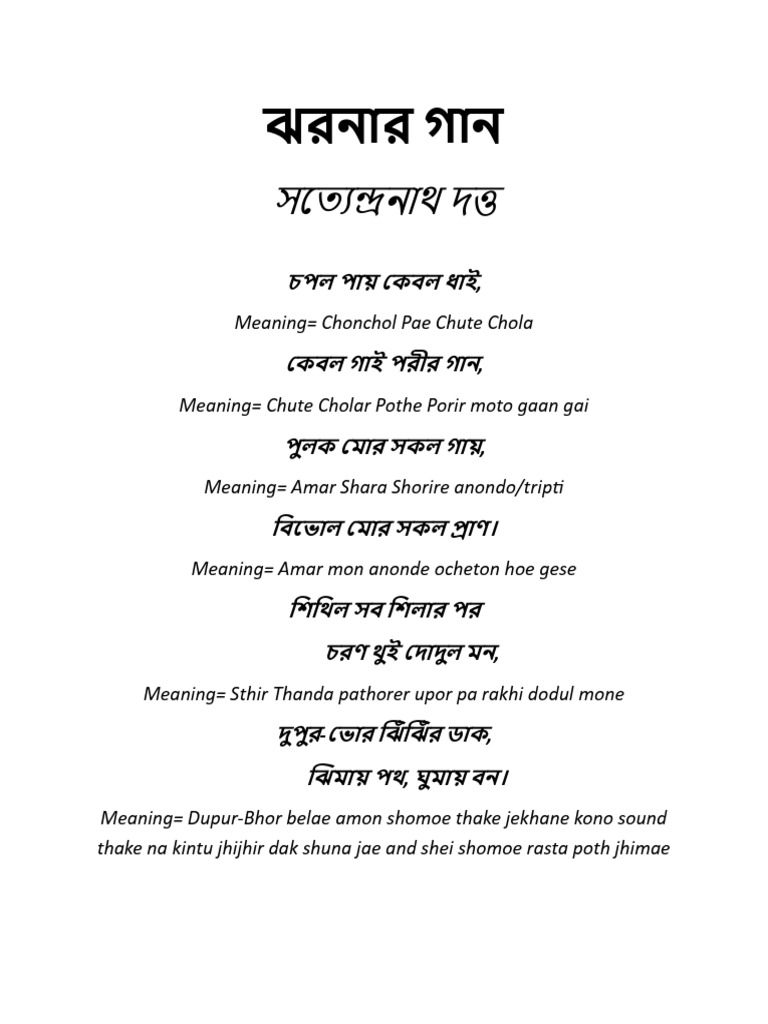 ঝরনার গান
সত্যেন্দ্রনাথ দত্ত
চপল পায় কেবল ধাই,
Meaning= Chonchol Pae Chute Chola
কেবল গাই পরীর গান,
Meaning= Chute Cholar Pothe Porir moto gaan gai
পুলক মোর সকল গায়,
Meaning= Amar Shara Shorire anondo/tripti
বিভোল মোর সকল প্রাণ।
Meaning= Amar mon anonde ocheton hoe gese
শিথিল সব শিলার পর
চরণ থুই দোদুল মন,
Meaning= Sthir Thanda pathorer upor pa rakhi dodul mone
দুপুর-ভোর ঝিঁঝিঁর ডাক,
ঝিমায় পথ, ঘুমায় বন।
Meaning= Dupur-Bhor belae amon shomoe thake jekhane kono sound
thake na kintu jhijhir dak shuna jae and shei shomoe rasta poth jhimae